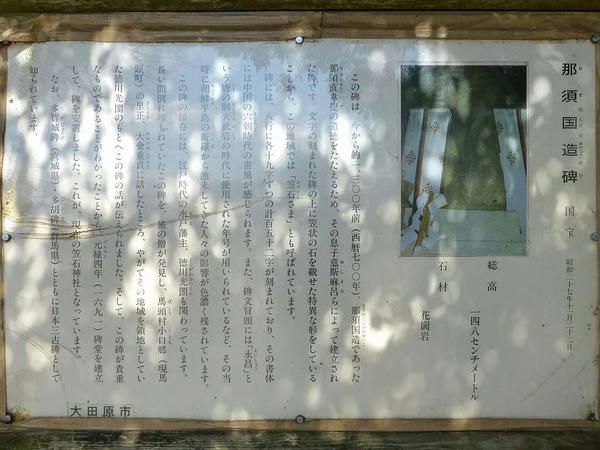 那須国造碑
なすのくにのみやつこのひ
国宝
昭和二十七年十一月二十二日
総高 一四八センチメートル
石材 花崗岩
この碑は、今から約一三〇〇年前(西暦七〇〇年)、那須国造であった
那須直韋提の遺徳をたたえるため、その息子意斯麻呂らによって建立され
た碑です。文字の刻まれた碑の上に笠状の石を載せた特異な形をしている
ことから、この地域では「笠石さま」とも呼ばれています。
碑には、八行に各十九字ずつの計百五十二字が刻まれており、その書体
には中国の六朝時代の書風が感じられます。また、碑文冒頭には「永昌」と
いう唐の則天武后の時代に使用された年号が用いられているなど、その当
時に朝鮮半島の新羅から渡来してきた人々の影響が色濃く残されています。
この碑の保存には、江戸時代の水戸藩主、徳川光圀も関わっています。
長い間倒れ埋もれていたこの碑を、旅の僧が発見し、馬頭村小口郷(現馬
頭町)の里正、大金重貞に話したところ、やがてその地域を領地としてい
た徳川光圀のもとへこの碑の話が伝えられました。そして、この碑が貴重
なものであることがわかったことから、元禄四年(一六九一)碑堂を建立
して、碑を安置しました。これが、現在の笠石神社となっています。
なお、多賀城碑(宮城県)、多胡碑(群馬県)とともに日本三古碑として
知られています。
大田原市